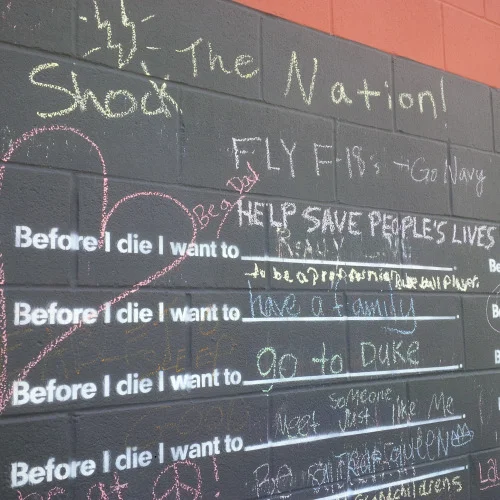 Shock The Nation!
FLY F-18's - Go Navy
Be a Dad
HELP SAVE PEOPLE'S LIVES
Before I die I want to
to be a Professional Baseball Player.
Before I die I want to have a family
Before I die I want to go to DUKE
Meet Someone Just like Me
Before I die I want to
grandchildrens